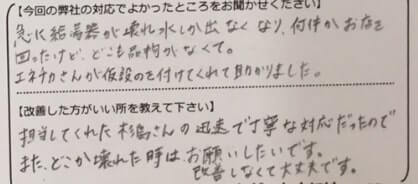 【今回の弊社の対応でよかったところをお聞かせください】
急に給湯器が壊れ水しか出なくなり、何件かお店を
回ったけど、どこも品物がなくて。
エネチカさんが仮設のを付けてくれて助かりました。
【改善した方がいい所を教えて下さい】
担当してくれた杉島さんの迅速で丁寧な対応だったので
また、どこか壊れた時は、お願いしたいです。
改善しなくて大丈夫です。